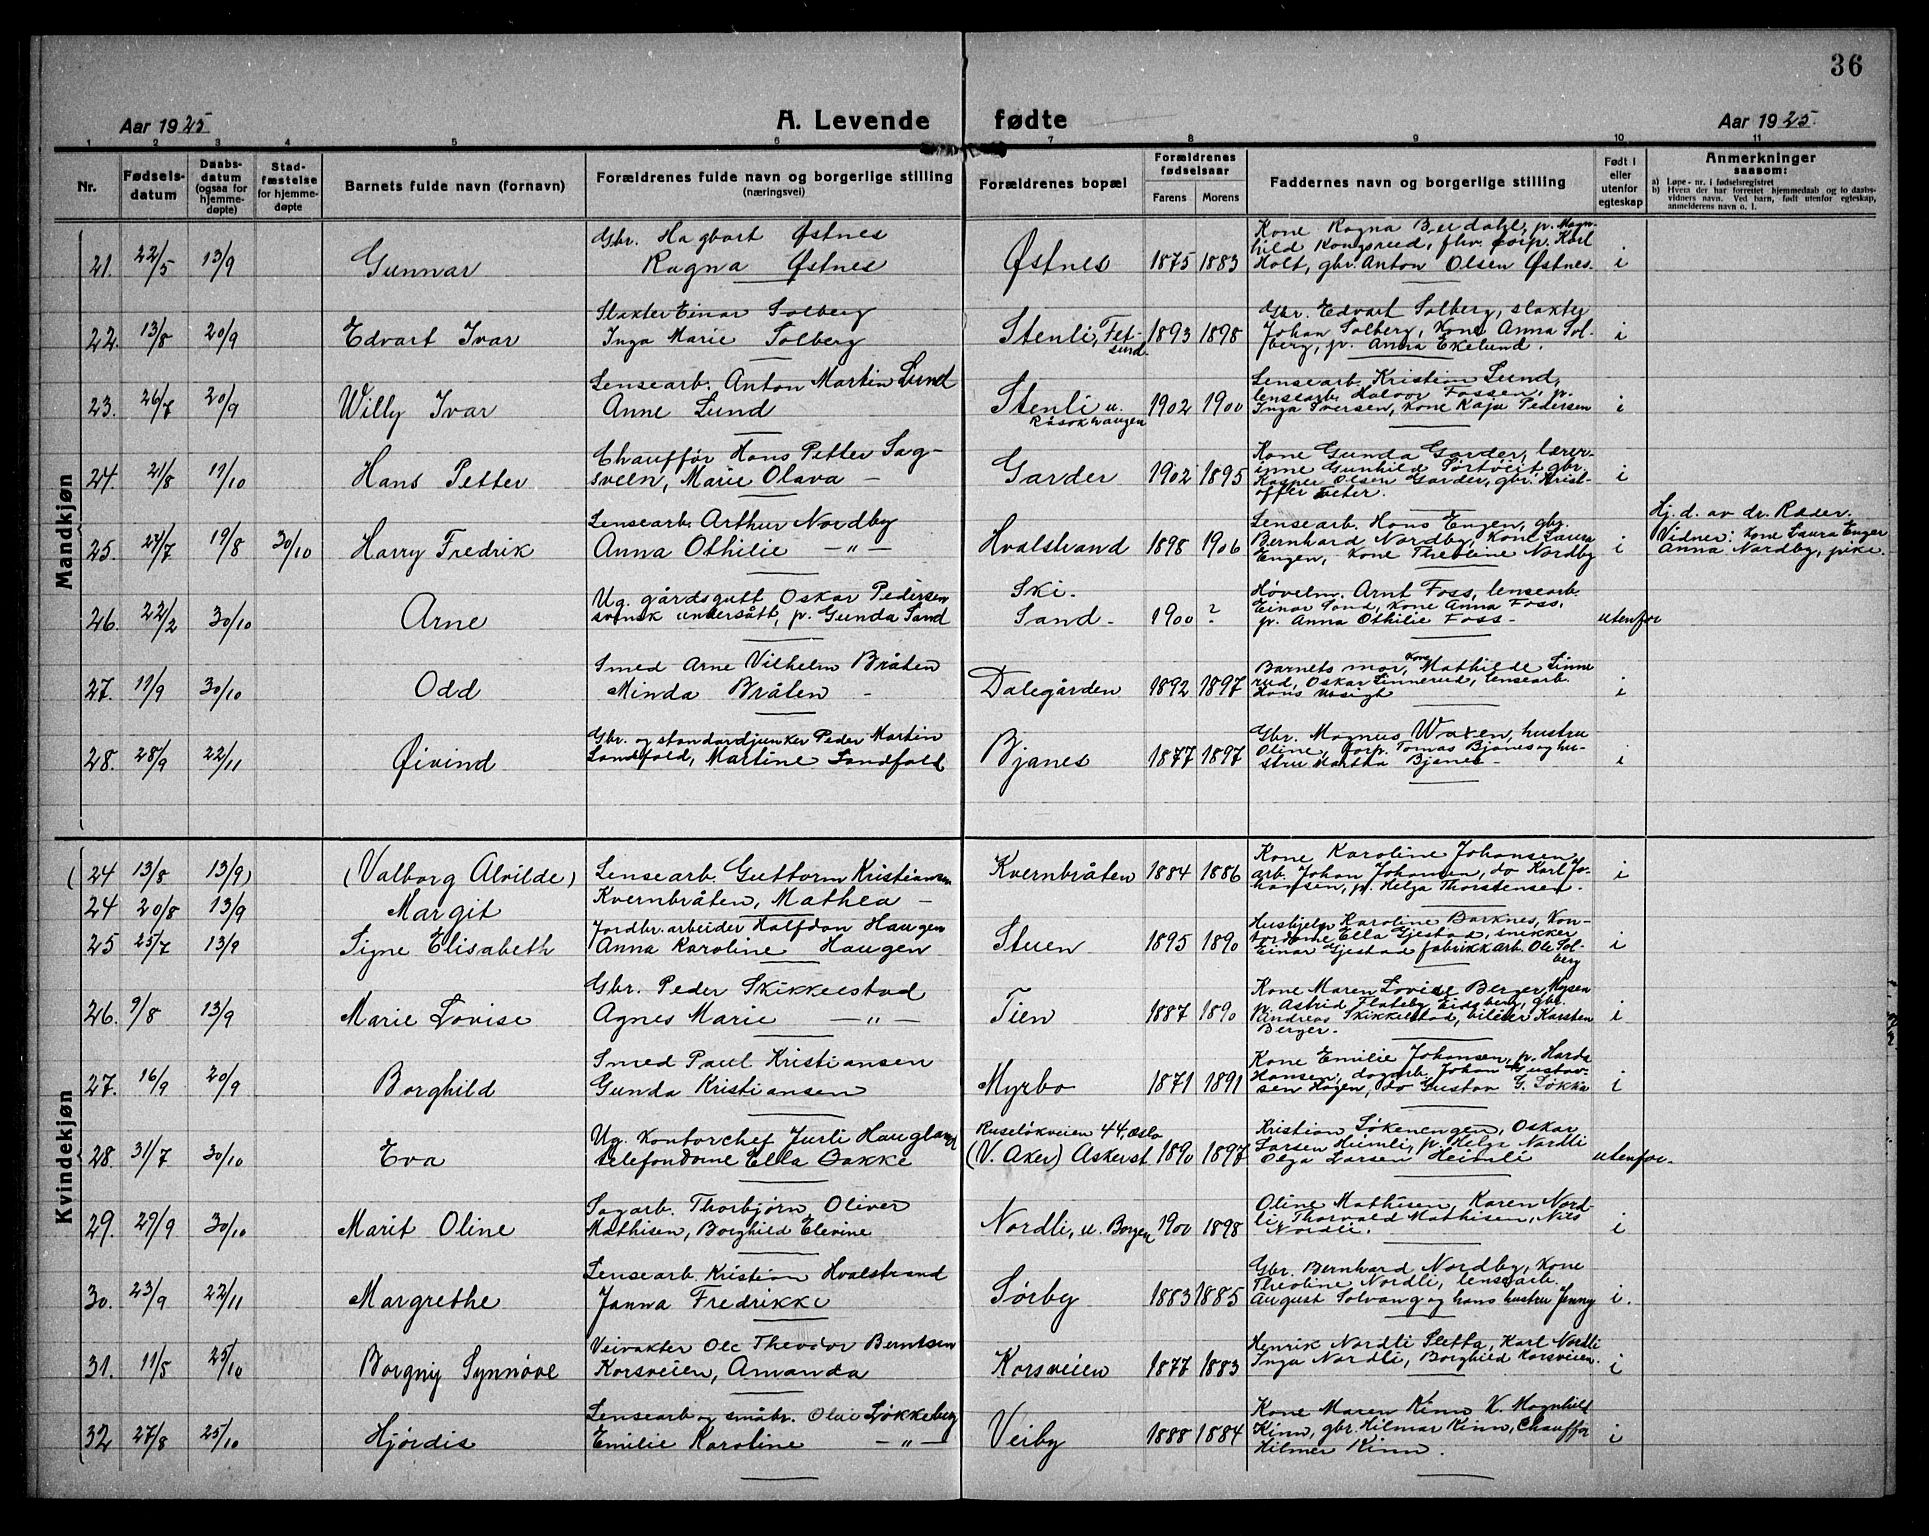 36
Aar 1925
A. Levende fødte
Aar 1925.
1 2 3 4 5 6 7 8 9 10 11
Nr.
Fødselsdatum
Daabsdatum (ogsaa for hjemmedøpte)
Stadfæstelse for hjemmedøpte
Barnets fulde navn (fornavn)
Forældrenes fulde navn og borgerlige stilling
(næringsvei)
Forældrenes bopæl
Forældrenes fødselsaar
Farens Morens
Faddernes navn og borgerlige stilling
Født i eller utenfor egteskap
Anmerkninger
saasom:
a) Løpe-nr. i fødselsregistret
b) Hvem der har forrettet hjemmedaab og to daabsvidners navn. Ved barn, født utenfor egteskap, anmelderens navn o. l.
Mandkjøn
21. 22/5 13/9 Gunnar
Gbr. Hagbart Østnes
Ragna Østnes
Østnes 1875 1883
Kone Ragna Berdahl, p. Magn-
hild Kongsrud, fhv. corp. Karl
Holt, gbr. Anton Olsen Østnes.
i
22. 13/8 20/9 Edvart Ivar
Slakter Einar Solberg
Inga Marie Solberg
Stenli, Fet-
sund. 1893 1898
Gbr. Edvart Solberg, slakter
Johan Solberg, Kone Anna Sol-
berg, p. Anna Ekelund.
i
23. 26/7 20/9 Willy Ivar
Lensearb. Anton Martin Lund
Anne Lund
Stenli u.
Råsokhaugen 1902 1900
Lensearb. Kristian Lund,
lensearb. Halvor Fossen, p.
Inga Iversen, Kone Kaja Pedersen
i
24. 21/8 11/10 Hans Petter
Chauffør Hans Petter Sag-
sveen, Marie Olava -
Garder 1902 1895
Kone Gunda Garder, lærer-
inne Gunhild Sørtveit, gbr.
Kasper Olsen Garder, gbr. Krist-
offer Feter.
i
25. 27/7 19/8 30/10 Harry Fredrik
Lensearb. Arthur Nordby
Anna Othilie -"-
Hvalstrand 1898 1906
Lensearb. Hans Engen, gbr.
Bernhard Nordby, Kone Laura
Engen, Kone Theoline Nordby
i
Hj. d. av dr. Ræder.
Vidner: Kone Laura Enger
Anna Nordby, pike.
26. 22/2 30/10 Arne
Ug. gårdsgutt Oskar Pedersen
svensk undersått, p. Gunda Sand
Ski.
Sand - 1900 ?
Høvelm. Arnt Foss, lensearb.
Einar Sand, Kone Anna Foss,
p. Anna Othilie Foss -
utenfor
27. 11/9 30/10 Odd
Smed Arne Vilhelm Bråten
Minda Bråten -
Dalegården 1892 1897
Barnets mor, Kone Mathilde Linne
rud, Oskar Linnerud, lensearb.
Hans
i
28. 28/9 22/11 Øivind
Gbr. og standardjunker Peder Martin
Sandfold, Martine Sandfold
Bjanes 1877 1897
Gbr. Magnus Waxen, hustru
Oline, corp. Tomas Bjanes og hu-
stru Martha Bjanes -
i
Kvindekjøn
(24 13/8 13/9) (Valborg Alvilde)
24 20/8 13/9 Margit
Lensearb. Guttorm Kristiansen
Kvernbråten, Mathea -
Kvernbråten 1884 1886
Kone Karoline Johansen
arb. Johan Johansen, do Karl Jo-
hansen, p. Helga Thorstensen.
i
25 25/7 13/9 Signe Elisabeth
Jordbr.arbeider Halfdan Haugen
Anna Karoline Haugen
Stuen 1895 1890
Hushjelp Karoline Barknes, Kon-
tordame Ella Gjestad, snikker
Einar Gjestad fabrikkarb. Ole Sol-
berg
i
26. 9/8 13/9 Marie Lovise
Gbr. Peder Skikkelstad
Agnes Marie -"-
Tien 1887 1890
Kone Maren Lovise Berger Mysen
p. Astrid Flateby Eidsberg, gbr.
Andreas Skikkelstad, bileier Karsten
Berger.
i
27. 16/9 20/9 Borghild
Smed Paul Kristiansen
Gunda Kristiansen
Myrbo 1871 1891
Kone Emilie Johansen, p. Harda
Hansen, dagarb. Johan Gustav-
sen Hagen, do Gustav G. Løkka
i
28. 31/7 30/10 Eva
Ug. Kontorchef Jurli Haugland
telefondame Ella Bakke
Ruseløkveien 44, Oslo
(V. Aker) Askerst 1890 1897
Kristian Løkenengen, Oskar
Larsen Heimli, p. Helga Nordli
Olga Larsen Heimli
utenfor.
29. 29/9 30/10 Marit Oline
Sagarb. Thorbjørn Oliver
Mathisen, Borghild Elevine
Nordli, u. Borgen 1900 1898
Oline Mathisen, Karen Nord-
li, Thorvald Mathisen, Nils
Nordli.
i
30. 23/9 22/11 Margrethe
Lensearb. Kristian Hvalstrand
Janna Fredrikke
Sørby 1883 1885
Gbr. Bernhard Nordby, Kone
Theoline Nordli, lensearb.
August Solvang og hans hustru Jenny
i.
31. 11/5 25/10 Borgny Synnøve
Veivakter Ole Theodor Berntsen
Korsveien, Amanda
Korsveien 1877 1883
Henrik Nordli Sletta, Karl Nordli
Inga Nordli, Borghild Korsveien.
i
32 27/8 25/10 Hjørdis
Lensearb og småbr. Olai Løkkeberg
Emilie Karoline -"-
Veiby 1888 1884
Kone Maren Kinn K. Magnhild
Kinn, gbr. Hilmar Kinn, Chauffør
Hilmer Kinn.
i